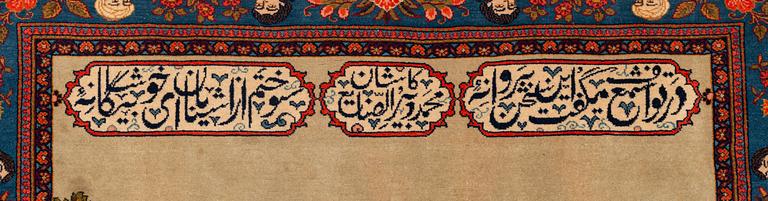 در طواف شمع میگفت این سخن پروانهٔ
کاشان محمد دبیر الصنایع
سوختم از آشنایان ای خوشا بیگانهٔ